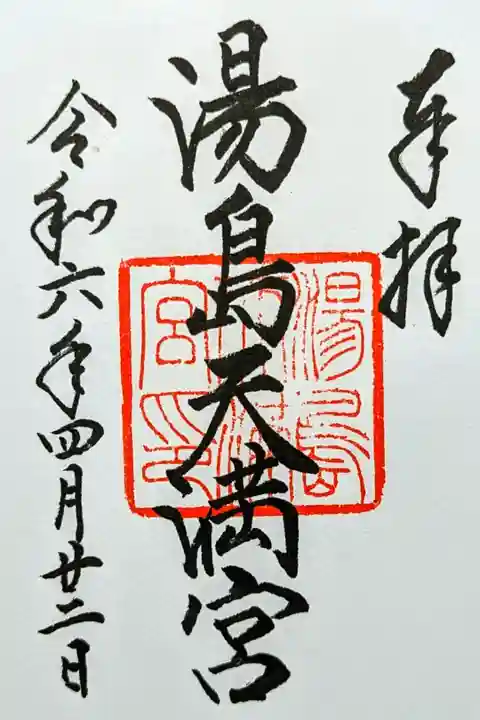 奉拝
湯島天満宮
令和六年四月廿二日
湯島
天満
宮印